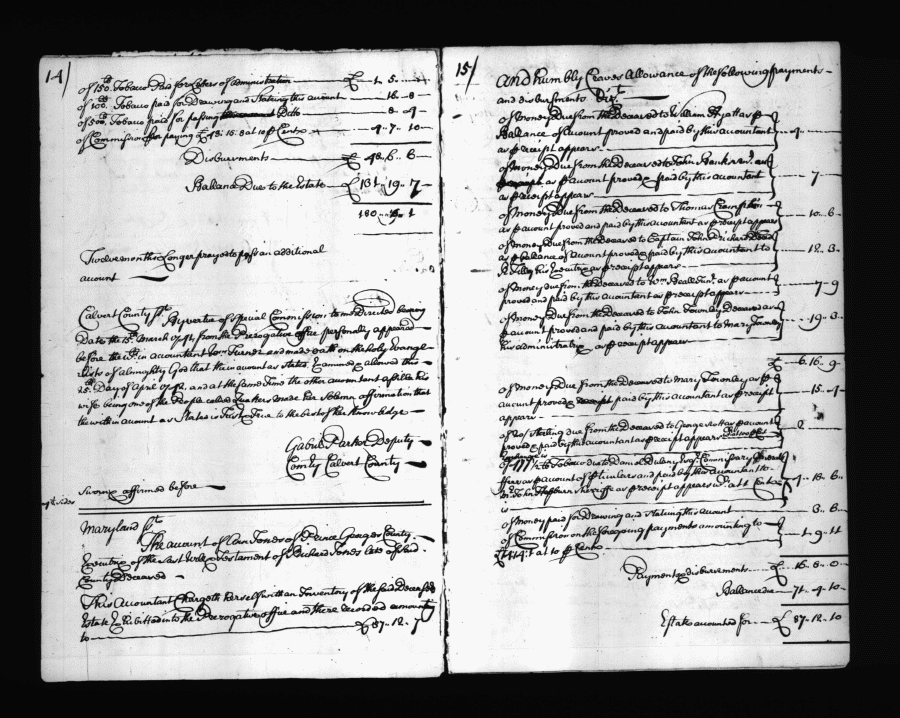 14/
of 150 Tobacco Paid for Letters of administration £ 1. 5.
of 100 Tobacco paid for Drawing and Stating this account 16. 8
of 50 Tobacco paid for passing Ditto 8. 4
of Commission for paying £ 43. 16. 8 at 10 p Cent 4. 7. 10
Disbursments £ 48. 6. 6
Ballance Due to the Estate £ 131. 19. 7
180
Twelve months Longer prayed to pass an additional
account
Calvert County Sct By vertue of Special Commission to me Directed bearing
Date the 15th March 1741 from the Prerogative office personally appeared
before the within accountant Turner and made oath on the Holy Evange
lists of almighty God that the in account as stated Examined & allowed this
25th Day of April 1742 and at the same time the other accountant his
wife being one of the People called Quakers made her Solemn affirmation that
the within account as Stated is Just & True to the best of her Knowledge
Gabriel Parker Deputy
Comry Calvert County
Sworn & affirmed before
4th Sides
Maryland Sct
The account of Ann Jones of Prince Georges County
Executrix of the Last Will & Testament of Richard Jones Late of said
County Deceased
This Accountant Chargeth herself with an Inventory of the said Deceased
Estate Exhibitted into the Prerogative office and there recorded amounting
to £ 87. 12. 7
15/
And humbly Craves Allowance of the following payments
and disbursments Vizt
of Money Due from the Deceased to William as p
Ballance of Account proved and paid by this accountant
as p receipt appears 4.
of Money Due from the Deceased to John
as p account proved & paid by this accountant
as p receipt appears 7
of Money Due from the Deceased to Thomas Crompton
as p account proved and paid by this accountant as p receipt appears 10. 6
of Money Due from the Deceased to Captain John
as p ballance of Account proved and paid by this accountant to
his Executrix as p receipt appears 12. 3
of Money due from the Deceased to Wm Beall as p account
proved and paid by this Accountant as p receipt appears 7. 9
of Money Due from the Deceased to John Townley Deceased as
p account proved and paid by this accountant to Mary Townley
his administratrix as p receipt appears 19. 3
£ 6. 16. 9
of Money Due from the Deceased to Mary Townley as p
account proved & paid by this Accountant as p receipt
appears 15. 4
of Sterling due from the Deceased to George as p account
proved & paid by this accountant as p receipt appears 2
of 1177½ lb Tobacco due to Daniel Dulany Esqr Commissary General
fees as p account of p and paid by this Accountant to
Mr John Hepburn Sheriff as p receipt appears at p Cent
is 4. 18. 6
of Money paid for Drawing and stating this account 8. 6
of Commission on the foregoing payments amounting to
£ 14. at 10 p Cent 1. 9. 11
Payments & disbursments £ 16. 8. 0
Ballance due 71. 4. 10
Estate accounted for £ 87. 12. 10